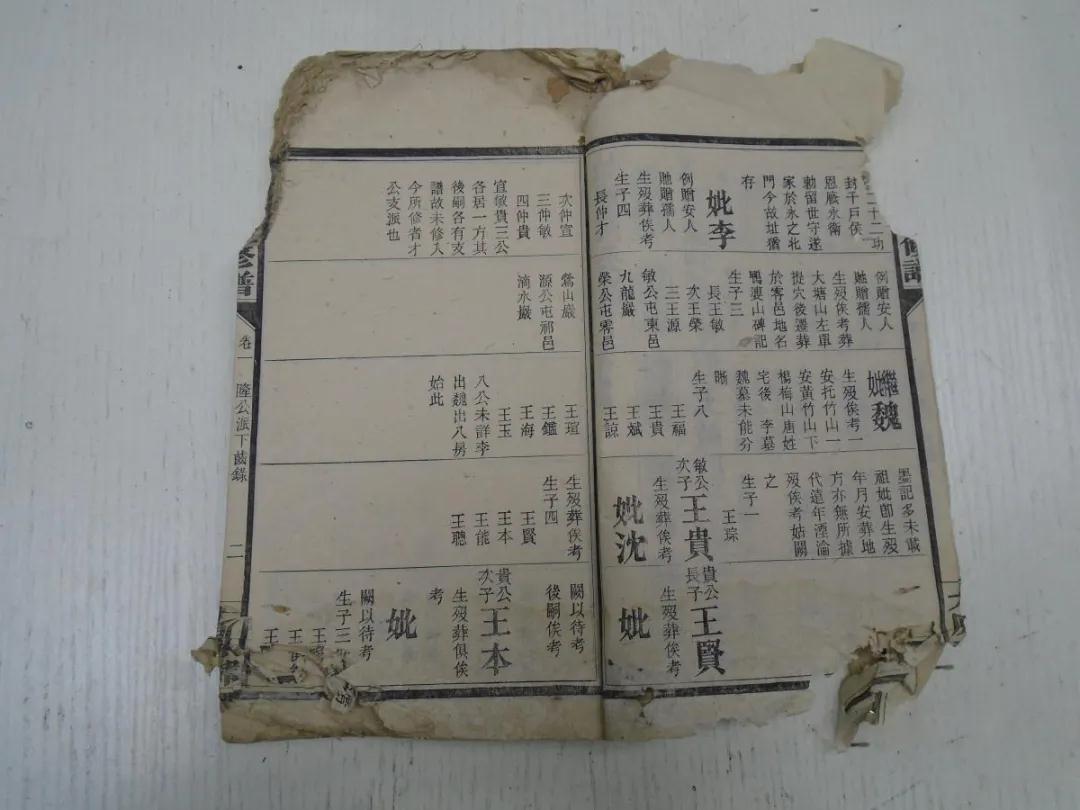 修譜
二十二功
封千戸侯
恩賸永衛
勅留世守遂
家於永之北
門今故址猶
存
妣李
例贈安人
貤贈孺人
生歿葬俟考
生子四
長仲才
例贈安人
貤贈孺人
生歿俟考葬
大塘山左單
挺穴後遷葬
於零邑地名
鴨婆山碑記
生子三
長王敏
次王榮
三王源
敏公屯東邑
九龍巖
榮公屯零邑
繼妣魏
生歿俟考一
安托竹山一
安黃竹山下
楊梅山唐姓
宅後 李墓
魏墓未能分
晰
生子八
王福
王貴
王斌
王諒
墨記多未載
祖妣卽生歿
年月安葬地
方亦無所據
代遠年湮淪
歿俟考姑闕
之
生子一
王琮
敏公次子 王貴
生歿葬俟考
妣沈
貴公長子 王賢
生歿葬俟考
妣
次仲宣
三仲敏
四仲貴
宣敏貴三公
各居一方其
後嗣各有支
譜故未修入
今所修者才
公支派也
鶩山巖
源公屯祁邑
滴水巖
王瑄
王鑑
王海
王玉
八公未詳李
出魏出八房
始此
生歿葬俟考
生子四
王賢
王本
王能
王聰
闕以待考
後嗣俟考
貴公次子 王本
生歿葬俱俟
考
妣
闕以待考
生子三
王
王
王
修譜
卷一
隆公派下齒錄
二